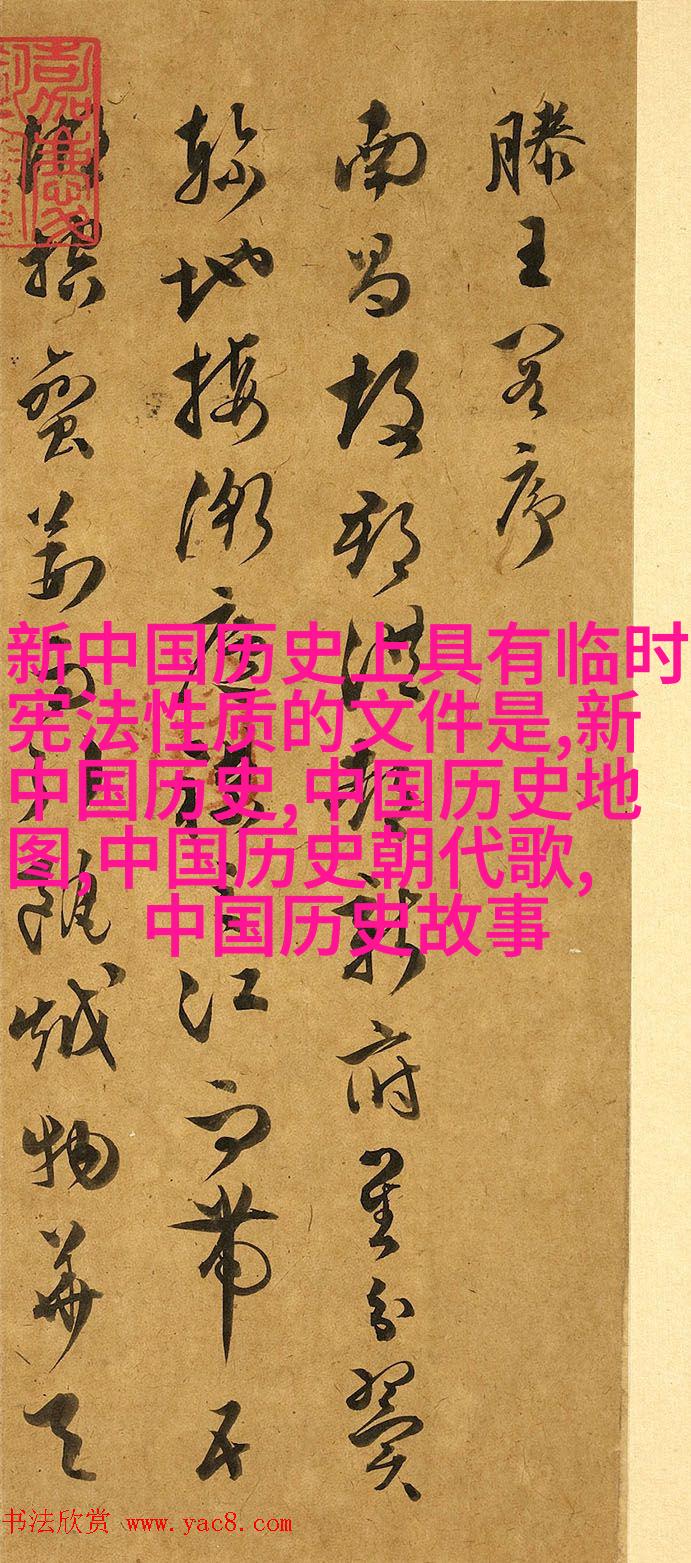 滕王閣序
南昌故郡洪都新府星分翼
軫地接衡廬襟三江而帶五
湖控蠻荊而引甌越物華天
新中国历史上具有临时
宪法性质的文件是,新
中国历史,中国历史地
图,中国历史朝代歌,
中国历史故事
书法欣赏 www.yac8.com